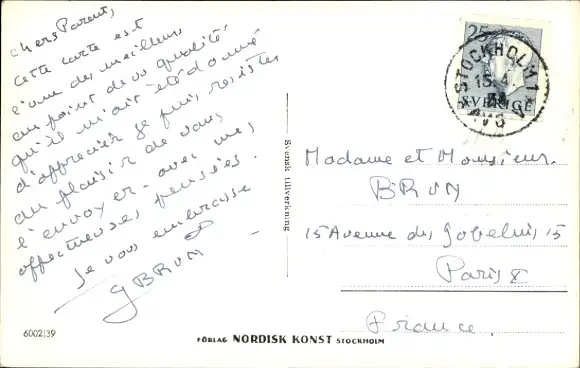 chers Parents,
Cette carte est
l'une des meilleurs
au point de vue qualité
qu'il m'ait été donné
d'apprécier je puis resister
au plaisir de vous
l'envoyer - avec mes
affectueuses pensées.
Je vous embrasse
G BRUN
Svensk tillverkning
25
STOCKHOLM 1
15.4
SVERIGE
AVG
Madame et Monsieur
BRUN
15 Avenue des Gobelins 15
Paris
France.
6002/39
FÖRLAG NORDISK KONST STOCKHOLM